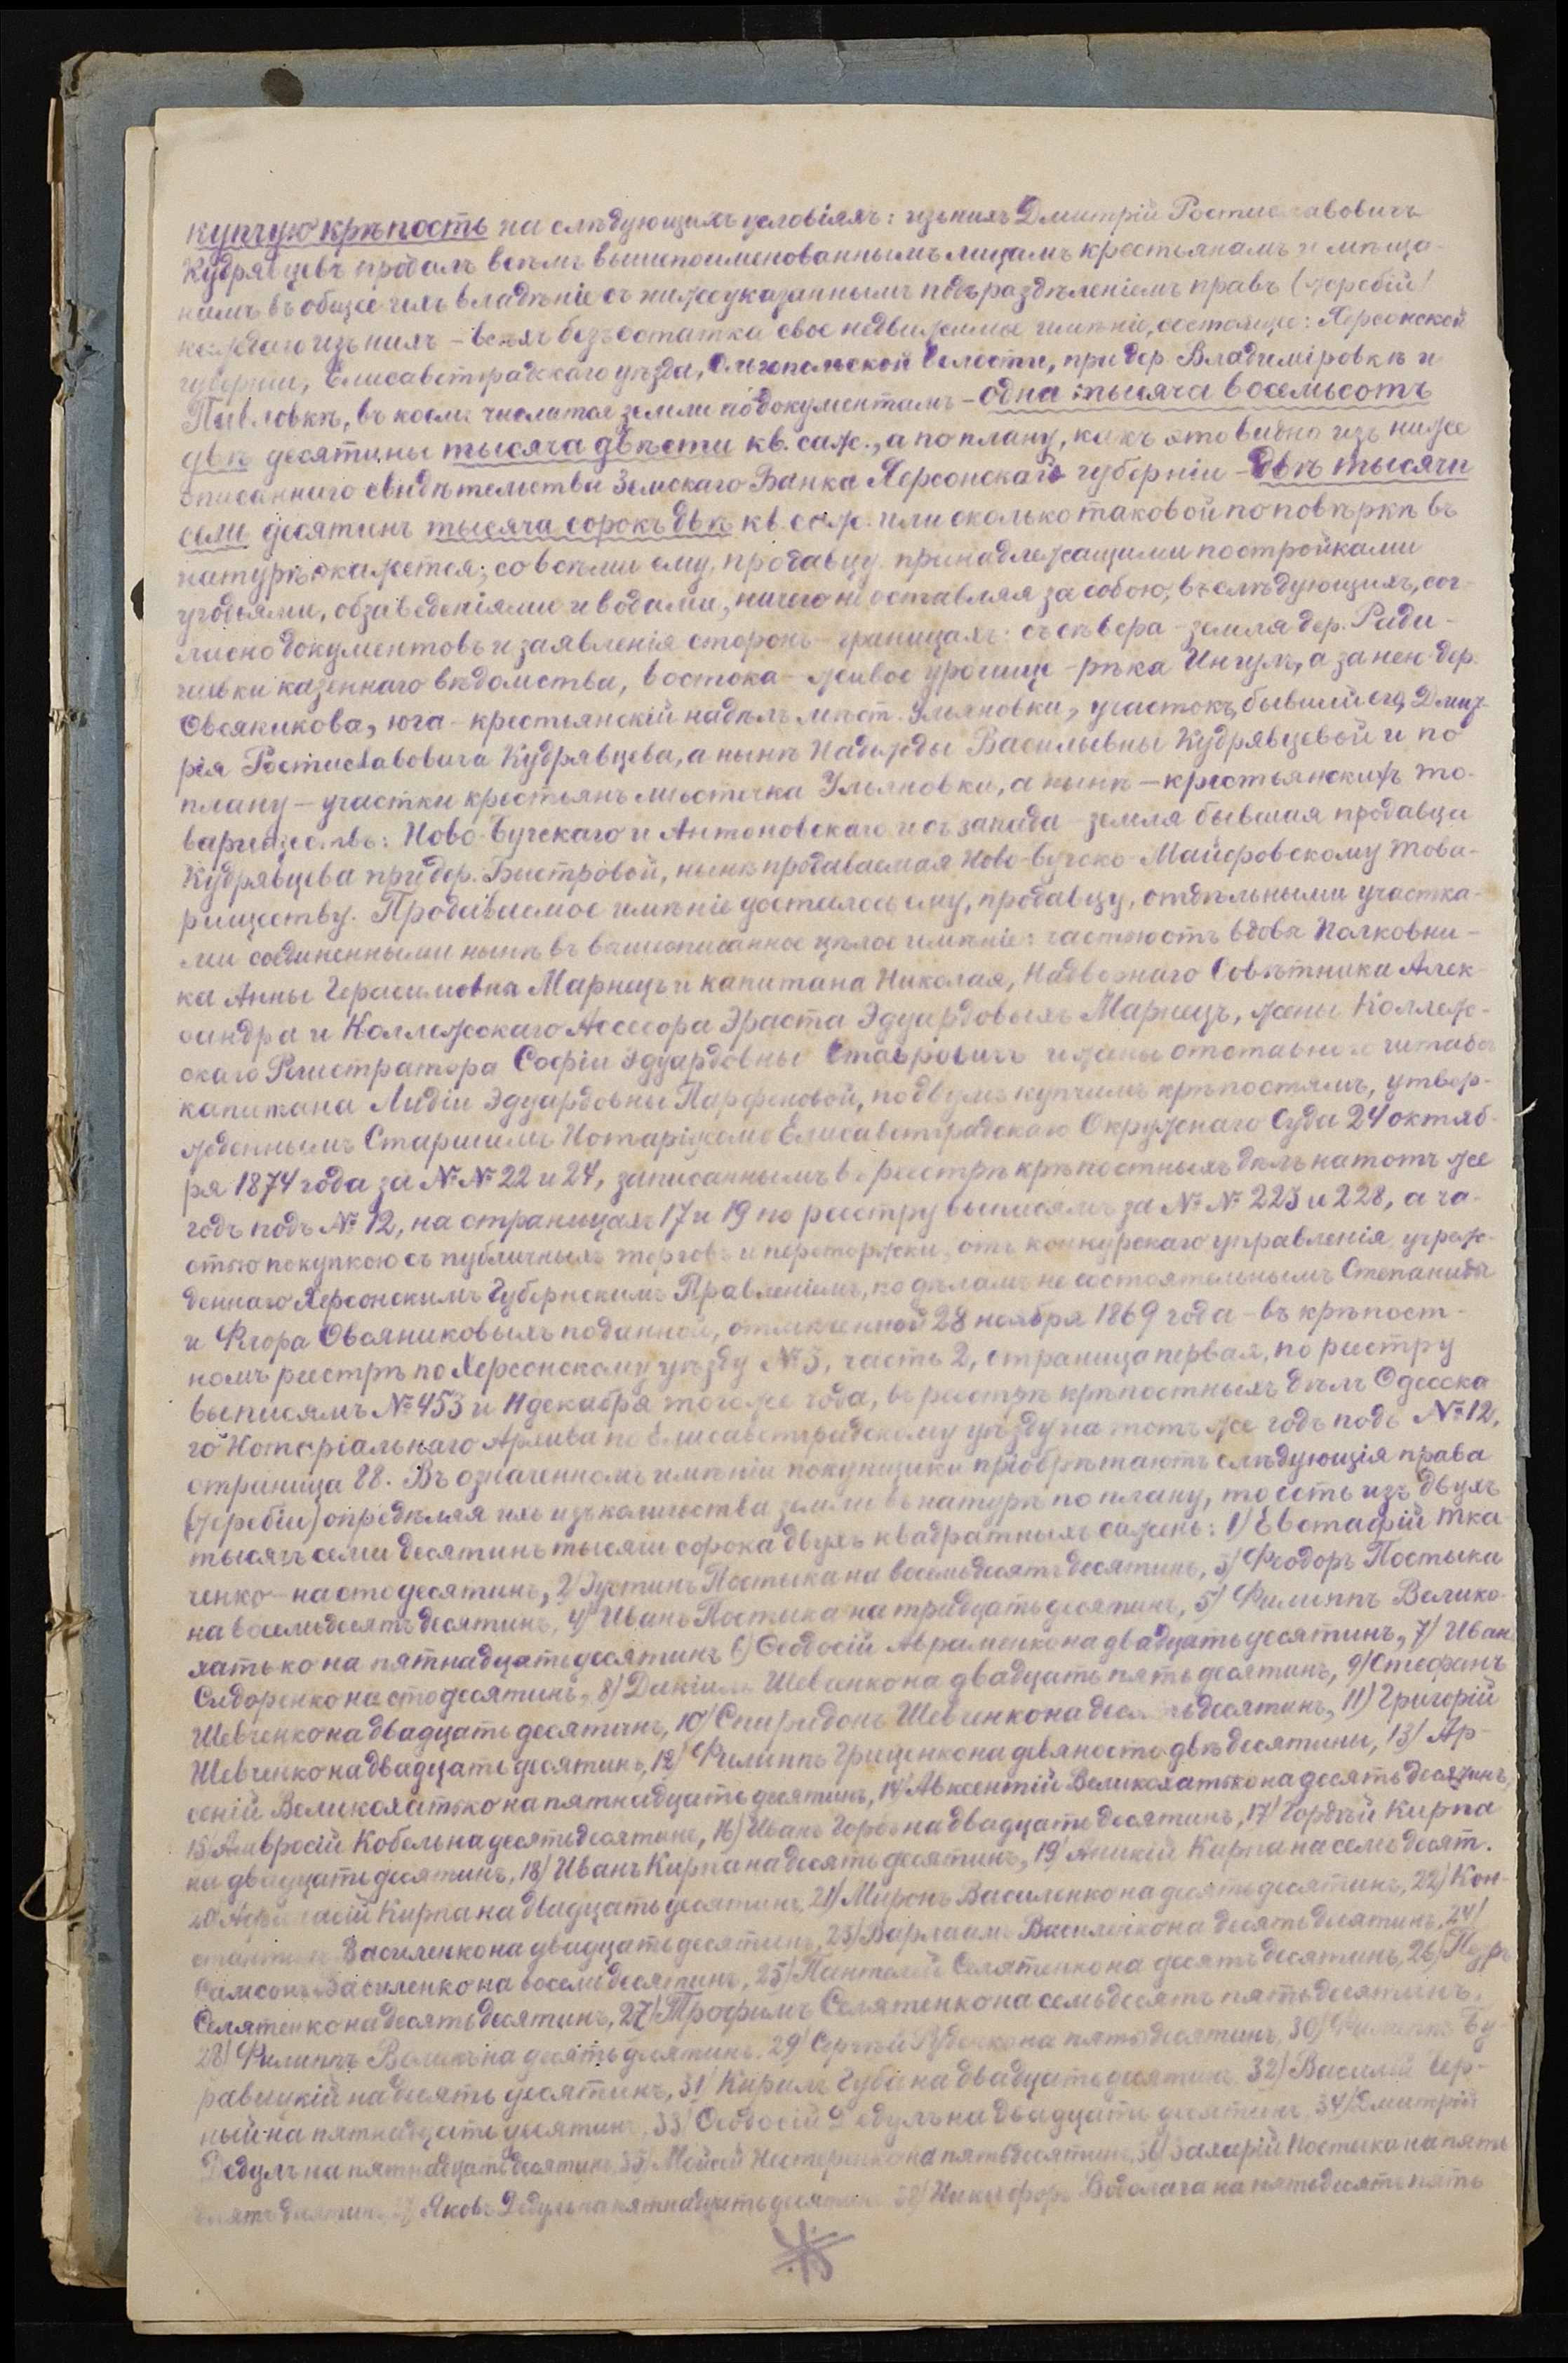 купчую крѣпость на слѣдующихъ условіяхъ: изъ нихъ Дмитрій Ростиславовичъ
Кудрявцевъ продалъ всѣмъ вышепоименованнымъ лицамъ крестьянамъ и мѣща-
намъ въ общее ихъ владѣніе съ нижеуказаннымъ подъраздѣленіемъ правъ (жеребій)
каждаго изъ нихъ – всѣхъ безъ остатка свое недвижимое имѣніе, состоящее: Херсонской
губерніи, Елисаветградскаго уѣзда, волости, при дер. Владиміровкѣ и
Павловкѣ, въ коемъ числится земли по документамъ – одна тысяча восемьсотъ
двѣ десятины тысяча двѣсти кв. саж., а по плану, какъ это видно изъ ниже
описаннаго свидѣтельства Земскаго Банка Херсонской губерніи – двѣ тысячи
семь десятинъ тысяча сорокъ двѣ кв. саж. или сколько таковой по повѣркѣ въ
натурѣ окажется; со всѣми ему, продавцу принадлежащими постройками
угодьями, обзаведеніями и водами, ничего не оставляя за собою, въ слѣдующихъ, сог-
ласно документовъ и заявленія сторонъ – границахъ: съ сѣвера – земля дер. Ради-
чивки казеннаго вѣдомства, востока – живое урочище – рѣка Ингулъ, а за нею дер.
Овсяникова, юга – крестьянскій надѣлъ мѣст. Ульяновки, участокъ, бывшій его, Дмит-
рія Ростиславовича Кудрявцева, а нынѣ Надежды Васильевны Кудрявцевой и по
плану – участки крестьянъ мѣстечка Ульяновки, а нынѣ – крестьянскихъ то-
вариществъ: Ново-Бугскаго и Антоновскаго и съ запада – земля бывшая продавца
Кудрявцева при дер. Быстровой, нынѣ продаваемая Ново-Бугско-Майоровскому това-
риществу. Продаваемое имѣніе досталось ему, продавцу, отдѣльными участка-
ми соединенными нынѣ въ вышеописанное цѣлое имѣніе: частью отъ вдовы Полковни-
ка Анны Герасимовны Марнецъ и капитана Николая, Надворнаго Совѣтника Алек-
сандра и Коллежскаго Ассесора Эраста Эдуардовыхъ Марнецъ, жены Коллеж-
скаго Регистратора Софіи Эдуардовны Ставровичъ и жены отставного штабсъ
капитана Лидіи Эдуардовны Парфеновой, по двумъ купчимъ крѣпостямъ, утвер-
жденнымъ Старшимъ Нотаріусомъ Елисаветградскаго Окружнаго Суда 24 октяб-
ря 1874 года за №№ 22 и 24, записаннымъ въ реестрѣ крѣпостныхъ дѣлъ на тотъ же
годъ подъ № 12, на страницахъ 17 и 19 по реестру выписямъ за №№ 223 и 228, а ча-
стью покупкою съ публичныхъ торговъ и переторжки, отъ конкурскаго управленія, учреж-
деннаго Херсонскимъ Губернскимъ Правленіемъ, по дѣламъ несостоятельнымъ Степаниды
и Фѳдора Овсяниковыхъ по данной, отмѣченной 28 ноября 1869 года – въ крѣпост-
номъ реестрѣ по Херсонскому уѣзду № 3, часть 2, страница первая, по реестру
выписямъ № 453 и 11 декабря того же года, въ реестрѣ крѣпостныхъ дѣлъ Одесска-
го Нотаріальнаго Архива по Елисаветградскому уѣзду на тотъ же годъ подъ № 12,
страница 88. Въ означенномъ имѣніи покупщики пріобрѣтаютъ слѣдующія права
(жеребіи) опредѣляя ихъ изъ количества земли въ натурѣ по плану, то есть изъ двухъ
тысячъ семи десятинъ тысячи сорока двухъ квадратныхъ сажень: 1) Евстафій Тка-
ченко – на сто десятинъ, 2) Іустинъ Постыка на восемьдесятъ десятинъ, 3) Феодоръ Постыка
на восемьдесятъ десятинъ, 4) Иванъ Постыка на тридцать десятинъ, 5) Филиппъ Велико-
хатько на пятнадцать десятинъ 6) Ѳеодосій Авраменко на двадцать десятинъ, 7) Иван
Сидоренко на сто десятинъ, 8) Даніилъ Шевченко на двадцать пять десятинъ, 9) Стефанъ
Шевченко на двадцать десятинъ, 10) Спиридонъ Шевченко на десять десятинъ, 11) Григорій
Шевченко на двадцать десятинъ, 12) Филиппъ Гриценко на девяносто двѣ десятины, 13) Ар-
сеній Великохатько на пятнадцать десятинъ, 14) Авксентій Великохатько на десять десятинъ,
15) Амвросій Кобель на десять десятинъ, 16) Иванъ Горбъ на двадцать десятинъ, 17) Гордѣй Кирпа
на двадцать десятинъ, 18) Иванъ Кирпа на десять десятинъ, 19) Аникій Кирпа на семь десят.
20) Кирпа на двадцать десятинъ, 21) Миронъ Василенко на десять десятинъ, 22) Кон-
стантинъ Василенко на двадцать десятинъ, 23) Варлаамъ Василенко на десять десятинъ, 24)
Самсонъ Василенко на восемь десятинъ, 25) Пантелей Селятенко на десять десятинъ, 26) Петръ
Селятенко на десять десятинъ, 27) Трофимъ Селятенко на семьдесятъ пять десятинъ,
28) Филиппъ на десять десятинъ, 29) Сергѣй на пять десятинъ, 30) Филиппъ Бу-
равицкій на десять десятинъ, 31) Кирилъ Губа на двадцать десятинъ, 32) Василій Чер-
ный на пятнадцать десятинъ, 33) Ѳеодосій Дедулъ на двадцать десятинъ, 34) Дмитрій
Дедулъ на пятнадцать десятинъ, 35) Мойсей Нестеренко на пять десятинъ, 36) Захарій Постыка на пять
десятинъ, 37) Яковъ Дедулъ на пятнадцать десятинъ 38) Никифоръ Водолага на пятьдесятъ пять